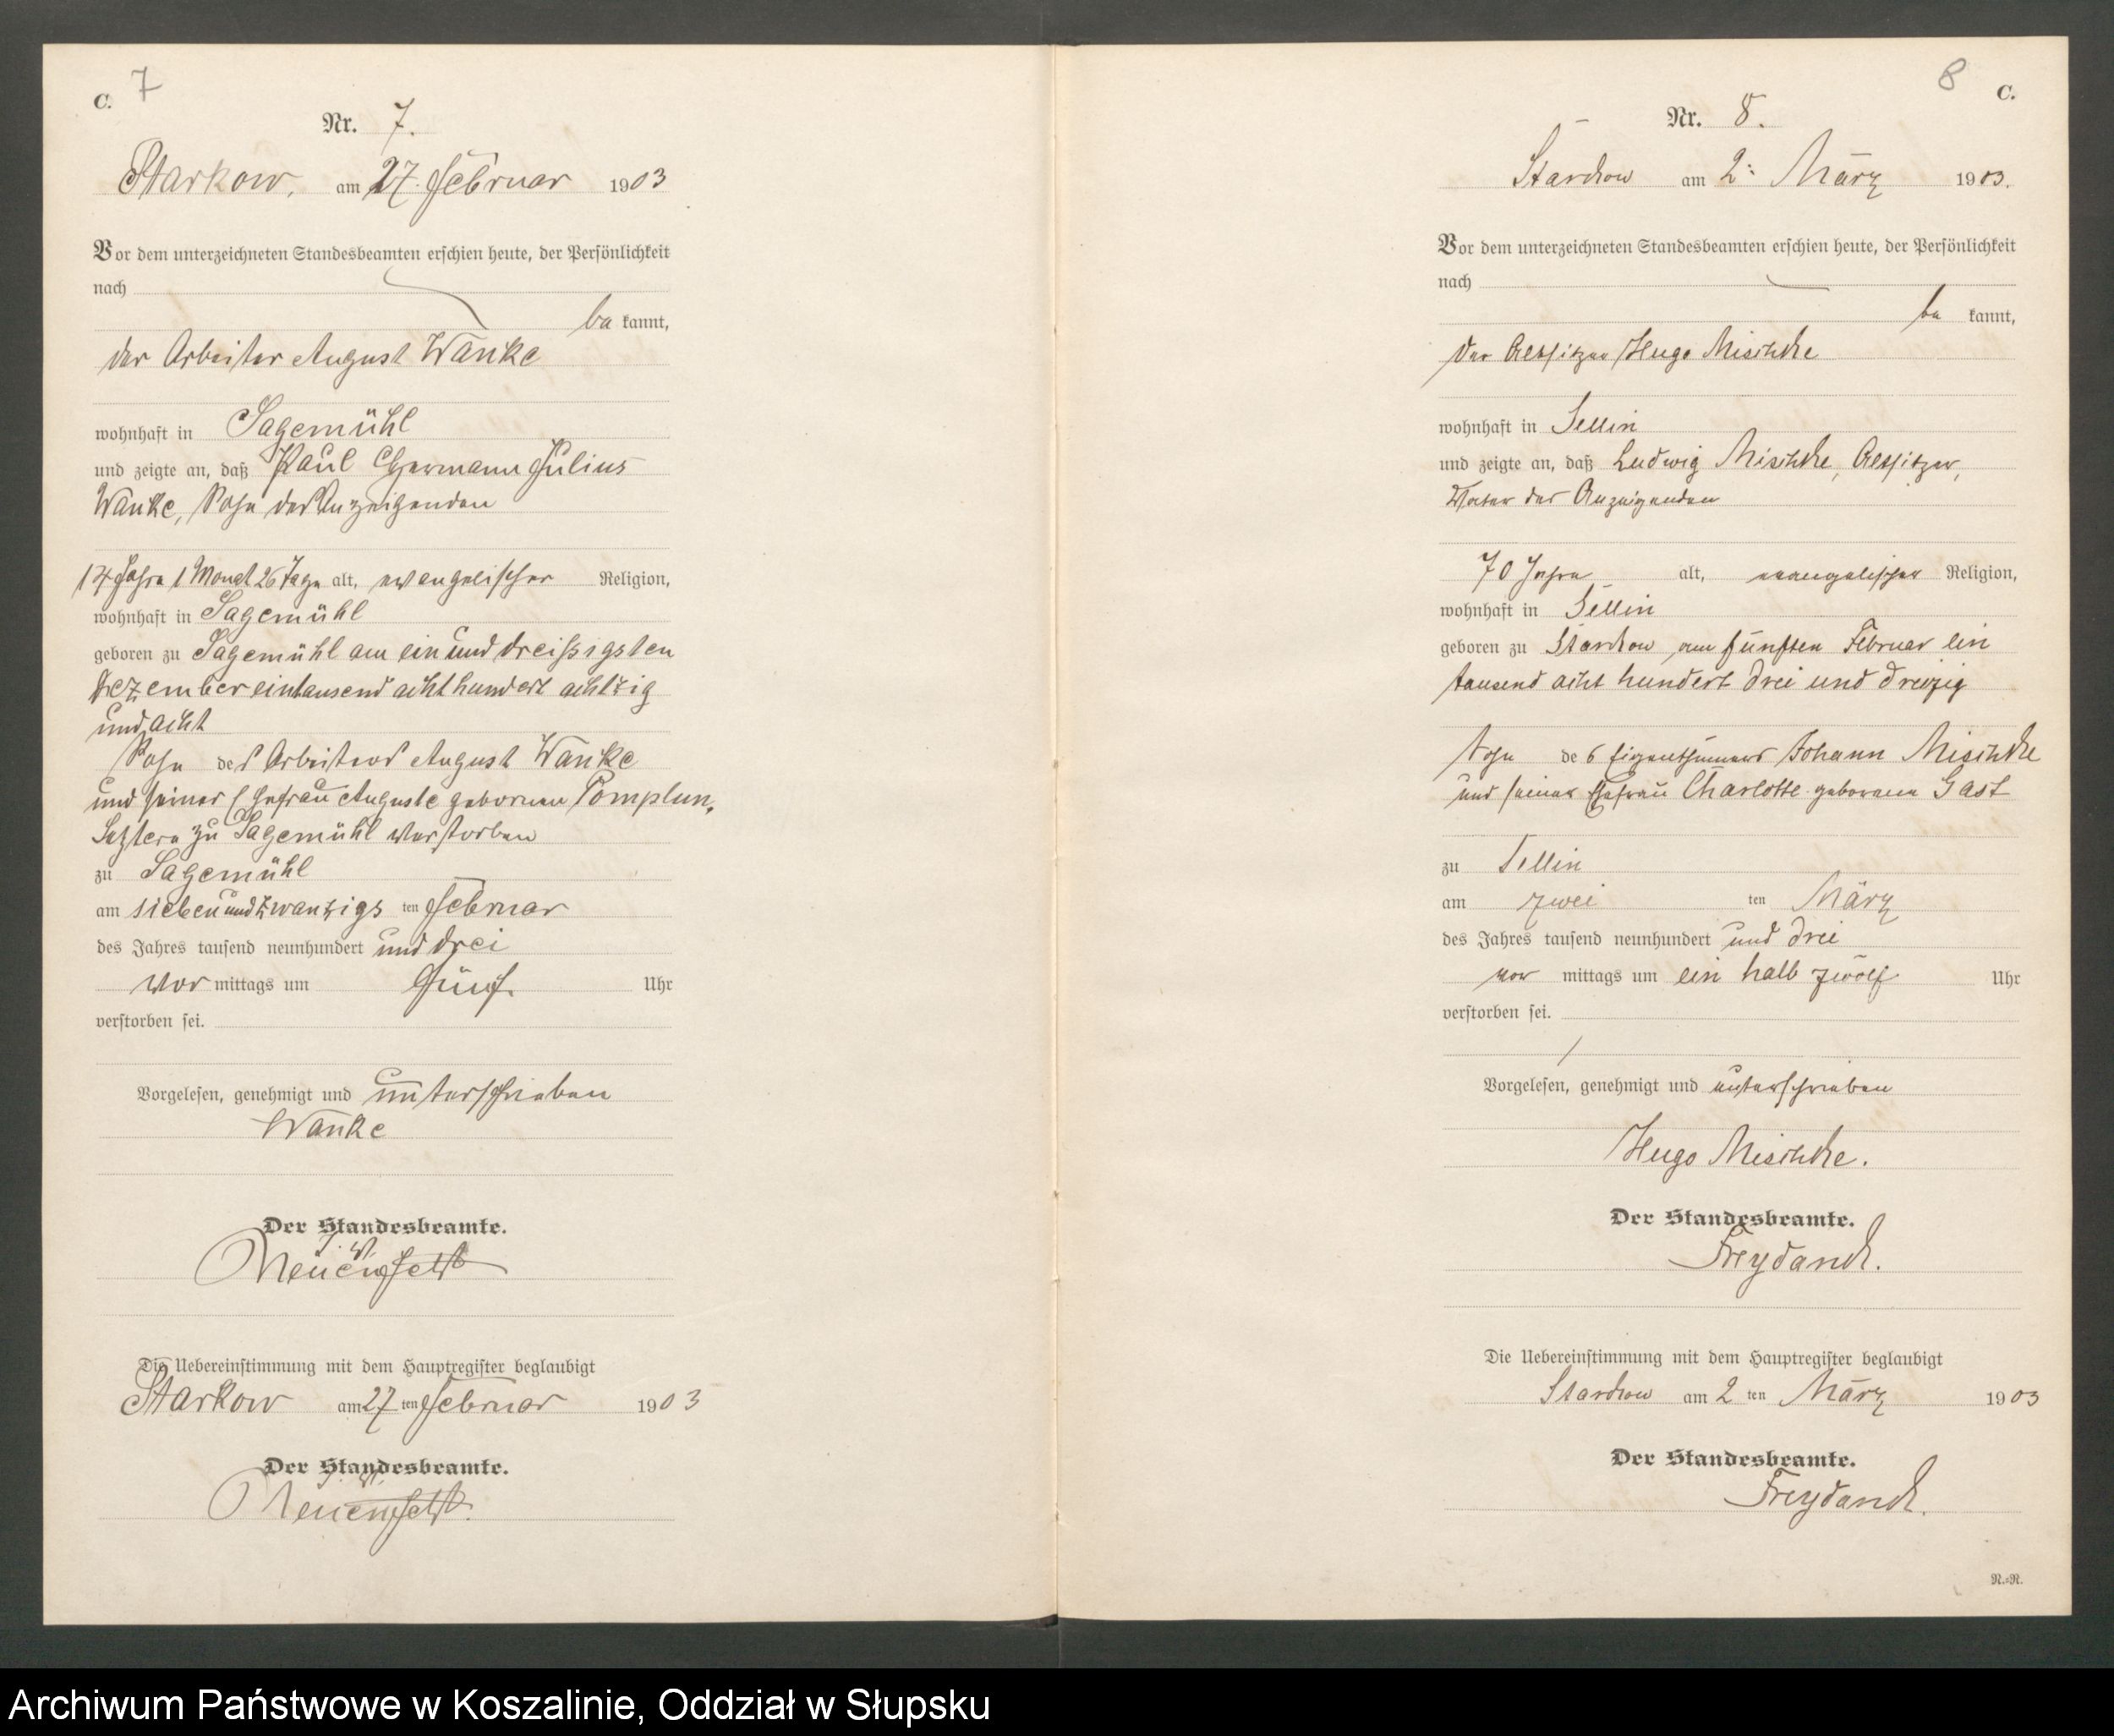 C. 7
Nr. 7.
Starkow, am 27. Februar 1903
Vor dem unterzeichneten Standesbeamten erschien heute, der Persönlichkeit
nach
be kannt,
der Arbeiter August Wanke
wohnhaft in Sagemühl
und zeigte an, daß Paul Hermann Julius
Wanke, Sohn des Anzeigenden
14 Jahre 1 Monat 26 Tage alt, evangelischer Religion,
wohnhaft in Sagemühl
geboren zu Sagemühl am ein und dreißigsten
Dezember eintausend achthundert achtzig
und acht
Sohn des Arbeiters August Wanke
und seiner Ehefrau Auguste geborenen Pomplun,
Letztere zu Sagemühl verstorben
zu Sagemühl
am sieben und zwanzigs ten Februar
des Jahres tausend neunhundert und drei
Vor mittags um fünf Uhr
verstorben sei.
Vorgelesen, genehmigt und unterschrieben
Wanke
Der Standesbeamte.
J. V.
Die Uebereinstimmung mit dem Hauptregister beglaubigt
Starkow am 27 ten Februar 1903
Der Standesbeamte.
J. V.
8 C.
Nr. 8.
Starckow am 2. März 1903.
Vor dem unterzeichneten Standesbeamten erschien heute, der Persönlichkeit
nach
be kannt,
der Besitzer Hugo Mischke
wohnhaft in Sellin
und zeigte an, daß Ludwig Mischke, Besitzer,
Vater des Anzeigenden
70 Jahre alt, evangelischer Religion,
wohnhaft in Sellin
geboren zu Starckow, am fünften Februar ein
tausend acht hundert drei und dreizig
Sohn des Eigenthümers Johann Mischke
und seiner Ehefrau Charlotte geborene Gast
zu Sellin
am zwei ten März
des Jahres tausend neunhundert und drei
vor mittags um ein halb zwölf Uhr
verstorben sei.
Vorgelesen, genehmigt und unterschrieben
Hugo Mischke.
Der Standesbeamte.
Freydanck.
Die Uebereinstimmung mit dem Hauptregister beglaubigt
Starckow am 2 ten März 1903
Der Standesbeamte.
Freydanck.
N.=N.
Archiwum Państwowe w Koszalinie, Oddział w Słupsku